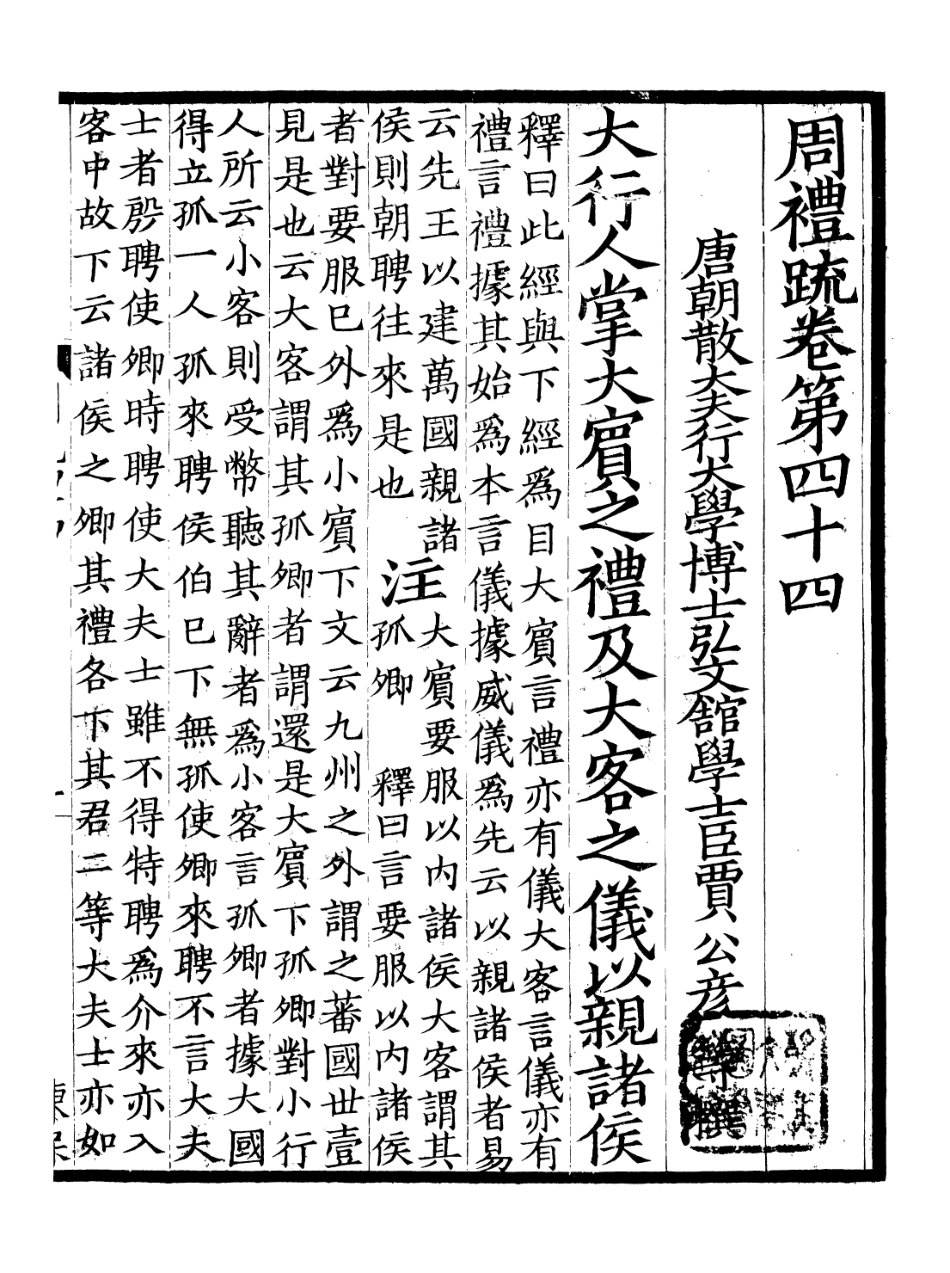 周禮疏卷第四十四
唐朝散大夫行大學博士弘文館學士臣賈公彥等撰
大行人掌大賓之禮及大客之儀以親諸侯
釋曰此經與下經爲目大賓言禮亦有儀大客言儀亦有
禮言禮據其始爲本言儀據威儀爲先云以親諸侯者易
云先王以建萬國親諸
侯則朝聘往來是也
注
大賓要服以内諸侯大客謂其
孤卿 釋曰言要服以内諸侯
者對要服已外爲小賓下文云九州之外謂之蕃國世壹
見是也云大客謂其孤卿者謂還是大賓下孤卿對小行
人所云小客則受幣聽其辭者爲小客言孤卿者據大國
得立孤一人孤來聘侯伯已下無孤使卿來聘不言大夫
士者殷聘使卿時聘使大夫士雖不得特聘爲介來亦入
客中故下云諸侯之卿其禮各下其君二等大夫士亦如